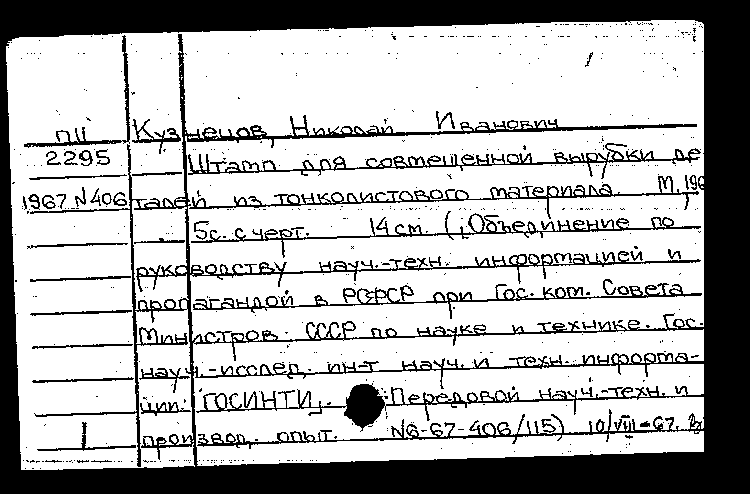 пII Кузнецов, Николай Иванович
2295 Штамп для совмещенной вырубки де
1967 N406 талей из тонколистового материала. М, 196
5с. с черт. 14 см. („Объединение по
руководству науч.-техн. информацией и
пропагандой в РСФСР при Гос. ком. Совета
Министров СССР по науке и технике. Гос.
науч.-исслед. ин-т науч. и техн. информа-
ции ГОСИНТИ„. Передовой науч.-техн. и
1 производ. опыт. N6-67-406/115) 10/VIII-67.